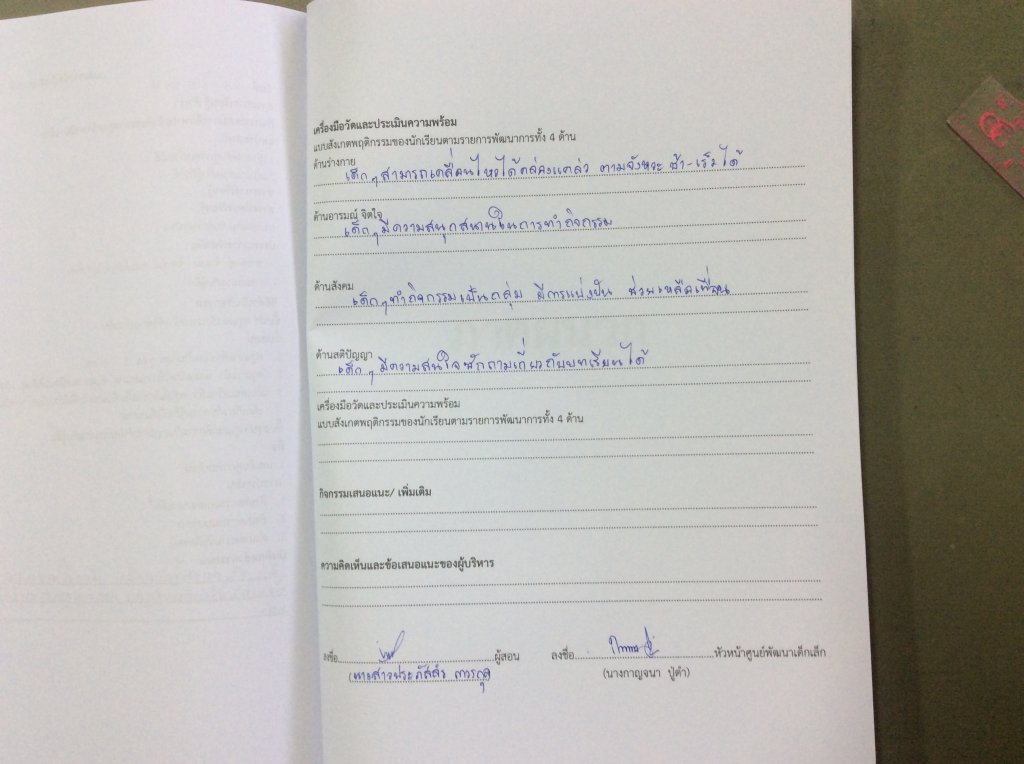 เครื่องมือวัดและประเมินความพร้อม
แบบสังเกตพฤติกรรมของนักเรียนตามรายการพัฒนาการทั้ง 4 ด้าน
ด้านร่างกาย
เด็กๆสามารถเคลื่อนไหวได้คล่องแคล่ว ตามจังหวะ ช้า-เร็วได้
ด้านอารมณ์ จิตใจ
เด็กๆมีความสนุกสนานในการทำกิจกรรม
ด้านสังคม
เด็กๆทำกิจกรรมเป็นกลุ่ม มีการแบ่งปัน ช่วยเหลือเพื่อน
ด้านสติปัญญา
เด็กๆ มีความสนใจซักถามเกี่ยวกับบทเรียนได้
เครื่องมือวัดและประเมินความพร้อม
แบบสังเกตพฤติกรรมของนักเรียนตามรายการพัฒนาการทั้ง 4 ด้าน
กิจกรรมเสนอแนะ/ เพิ่มเติม
ความคิดเห็นและข้อเสนอแนะของผู้บริหาร
ลงชื่อ ผู้สอน ลงชื่อ หัวหน้าศูนย์พัฒนาเด็กเล็ก
(นางสาวประภัสสร (นางกาญจนา ปู่ดำ)